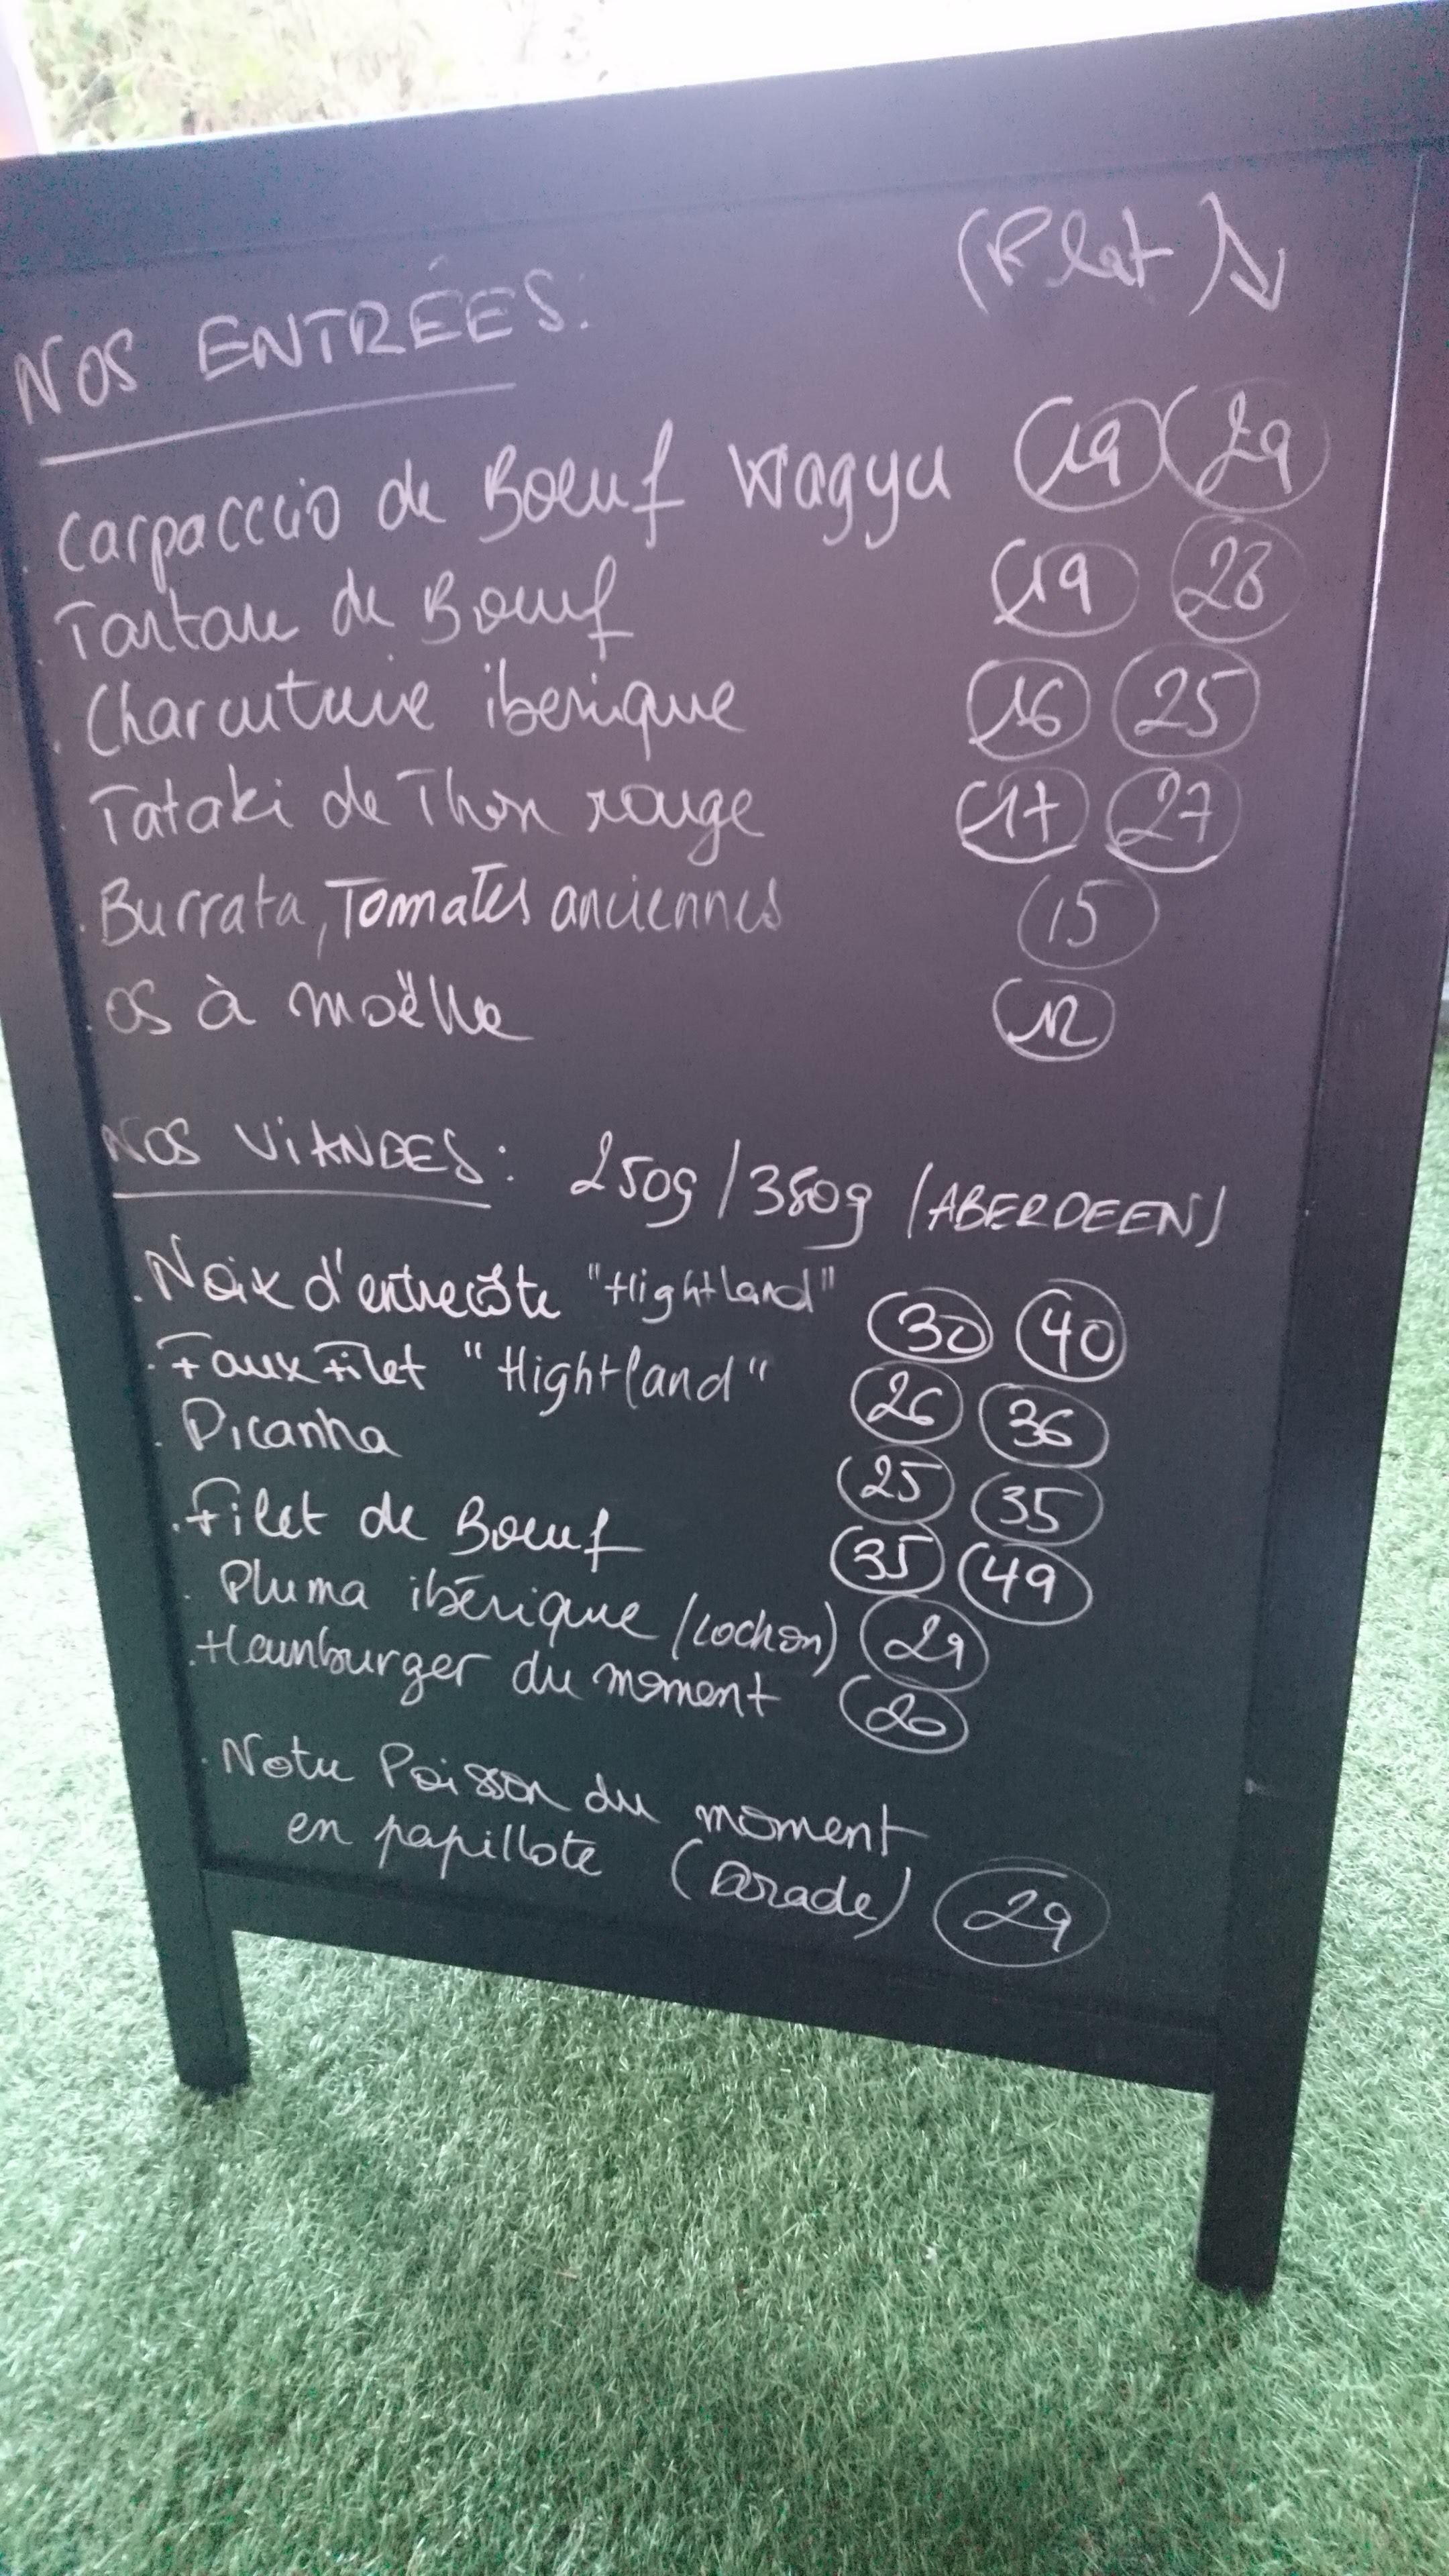 NOS ENTRÉES: (Plat)
. Carpacccio de Boeuf Wagyu 19 29
. Tartare de Boeuf 19 28
. Charcuterie iberique 16 25
. Tataki de Thon rouge 17 27
. Burrata, Tomates anciennes 15
. os à moëlle 12
NOS VIANDES: 250g/350g (ABERDEEN)
. Noix d'entrecôte "Hightland" 30 40
. Faux Filet "Hightland" 26 36
. Picanha 25 35
. Filet de Boeuf 35 49
. Pluma ibérique (cochon) 29
. Hamburger du moment 20
. Notre Poisson du moment
en papillote (Dorade) 29